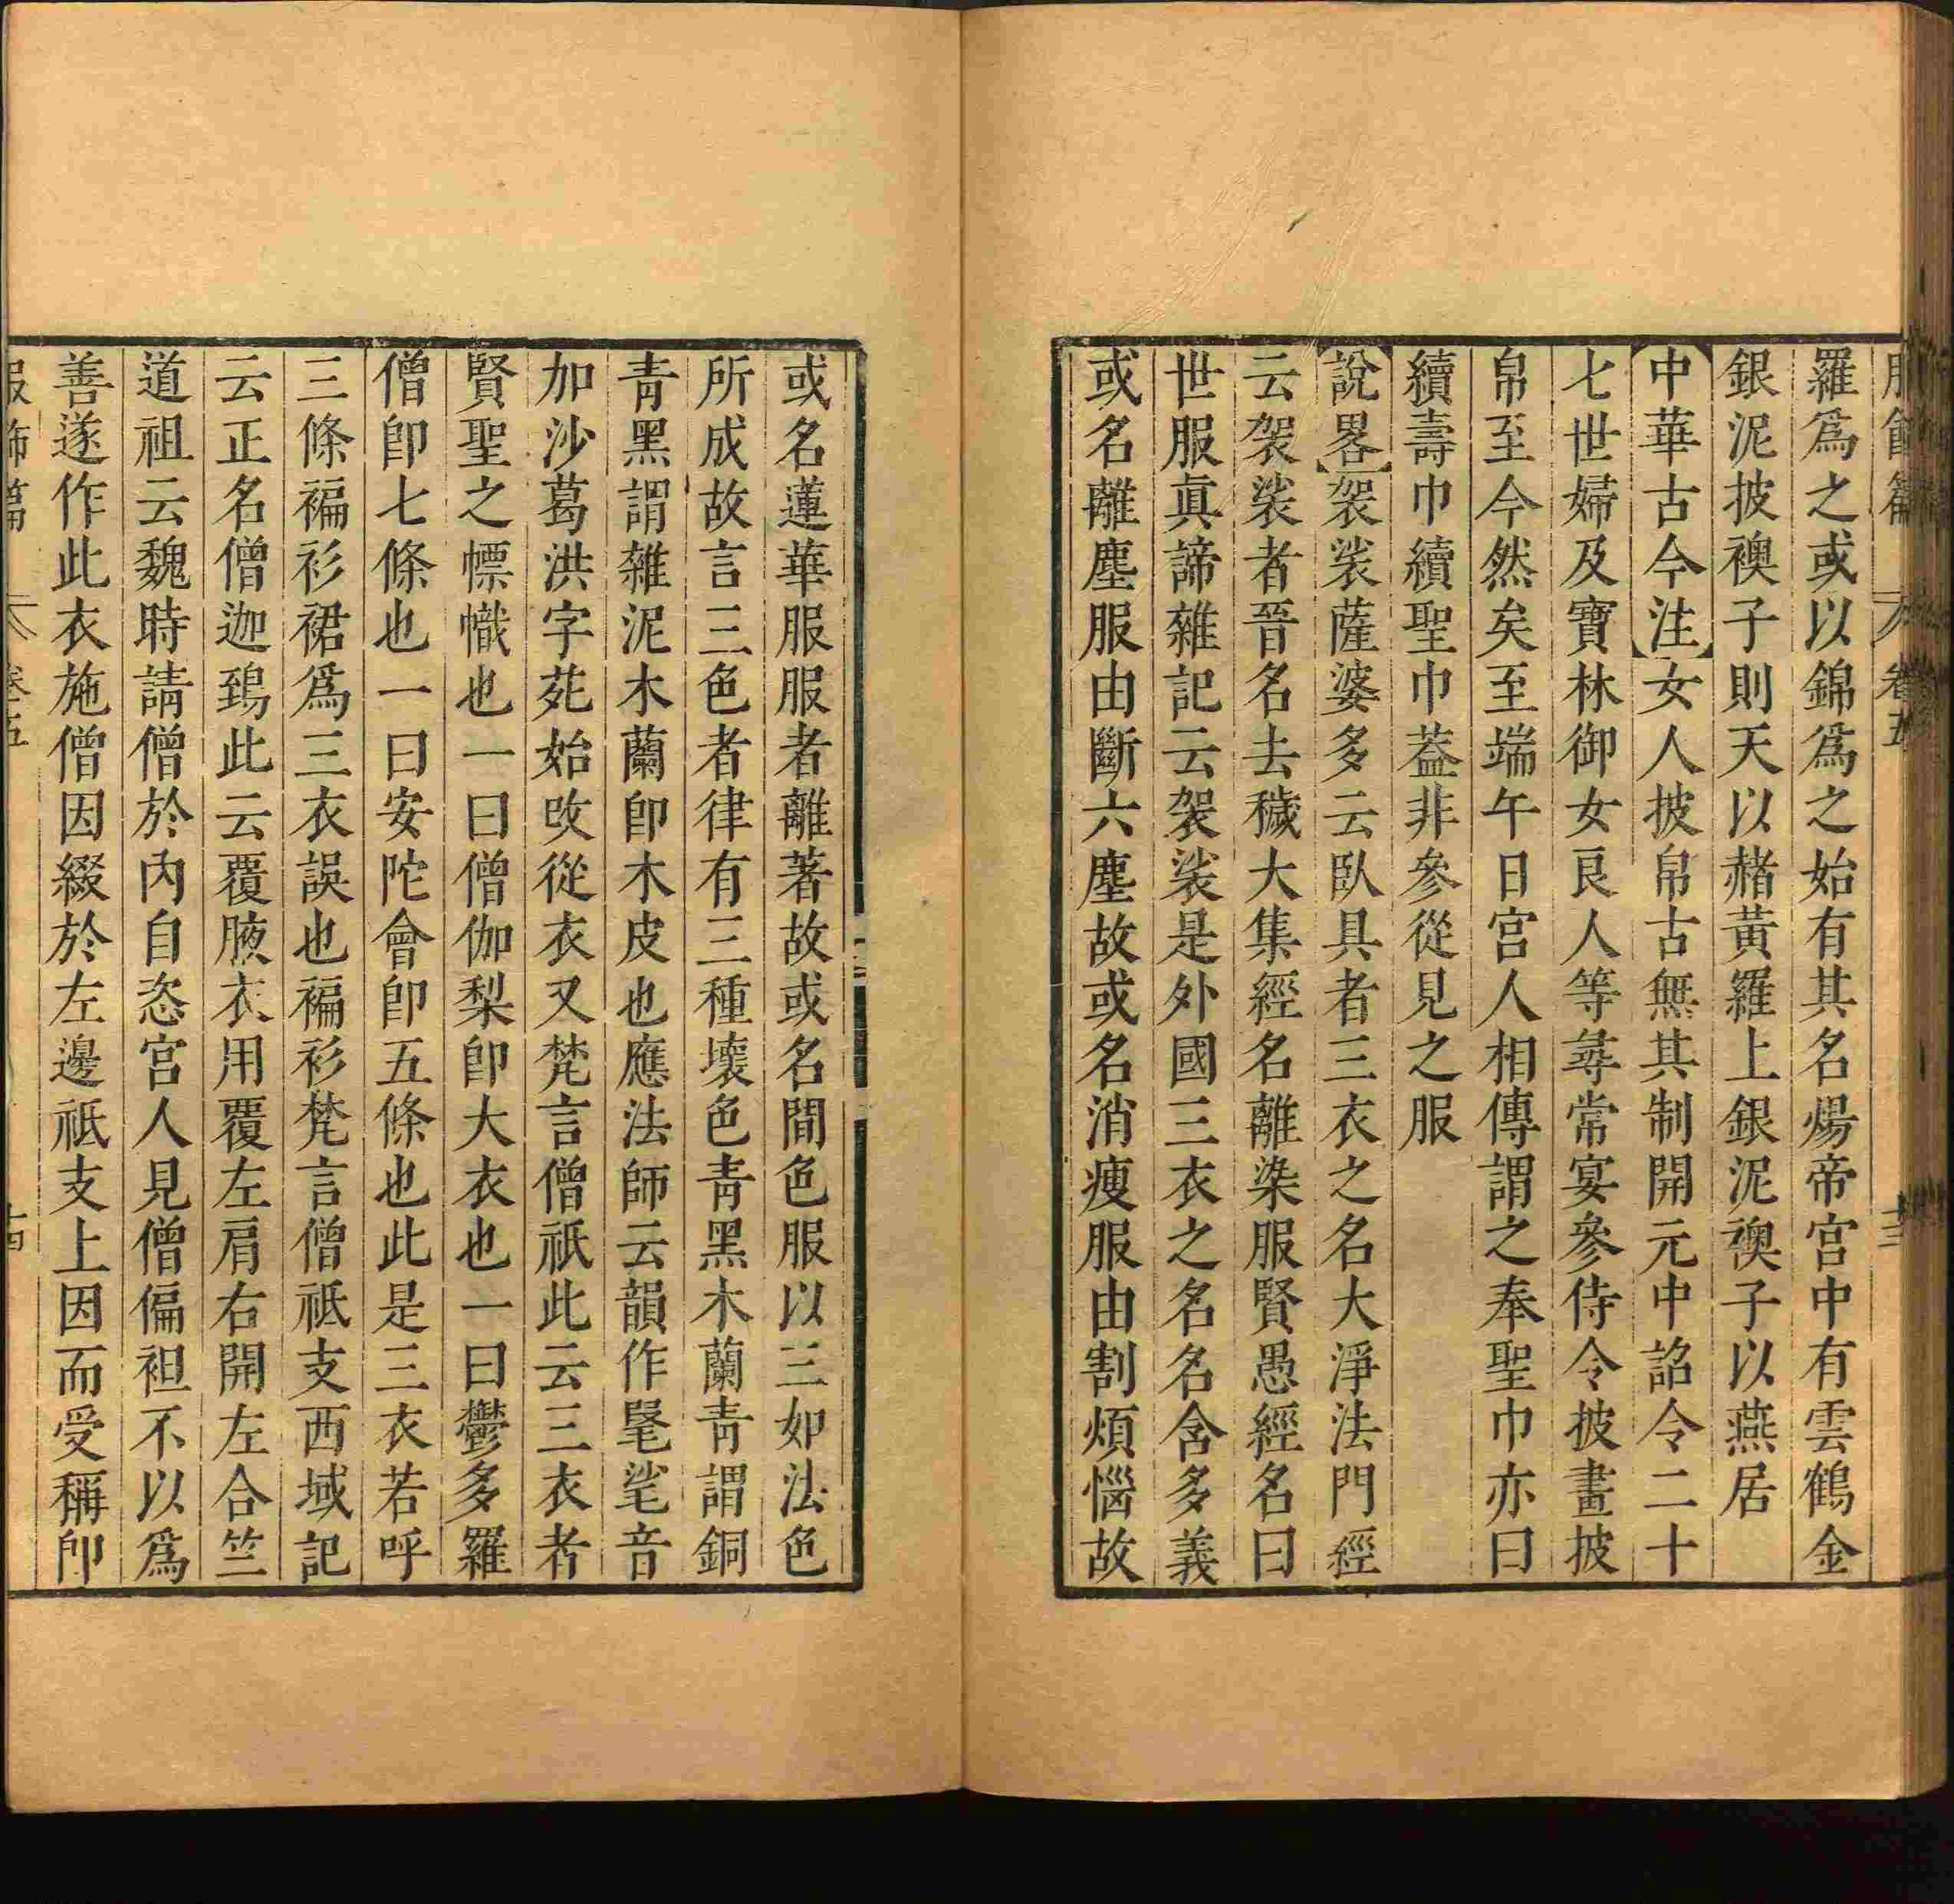 服飾篇 卷五 十三
羅爲之或以錦爲之始有其名煬帝宮中有雲鶴金
銀泥披襖子則天以赭黃羅上銀泥襖子以燕居
【中華古今注】女人披帛古無其制開元中詔令二十
七世婦及寶林御女良人等尋常宴參侍令披畫披
帛至今然矣至端午日宮人相傳謂之奉聖巾亦曰
續壽巾續聖巾蓋非參從見之服
【說畧】袈裟薩婆多云臥具者三衣之名大淨法門經
云袈裟者晉名去穢大集經名離染服賢愚經名曰
世服眞諦雜記云袈裟是外國三衣之名名含多義
或名離塵服由斷六塵故或名消瘦服由割煩惱故
或名蓮華服服者離著故或名間色服以三如法色
所成故言三色者律有三種壞色青黑木蘭青謂銅
青黑謂雜泥木蘭卽木皮也應法師云韻作毠㲚音
加沙葛洪字苑始改從衣又梵言僧祇此云三衣者
賢聖之幖幟也一曰僧伽梨卽大衣也一曰鬱多羅
僧卽七條也一曰安陀會卽五條也此是三衣若呼
三條褊衫裙爲三衣誤也褊衫梵言僧祇支西域記
云正名僧迦鵄此云覆腋衣用覆左肩右開左合竺
道祖云魏時請僧於內自恣宮人見僧偏袒不以爲
善遂作此衣施僧因綴於左邊祇支上因而受稱卽
服飾篇 卷五 十四